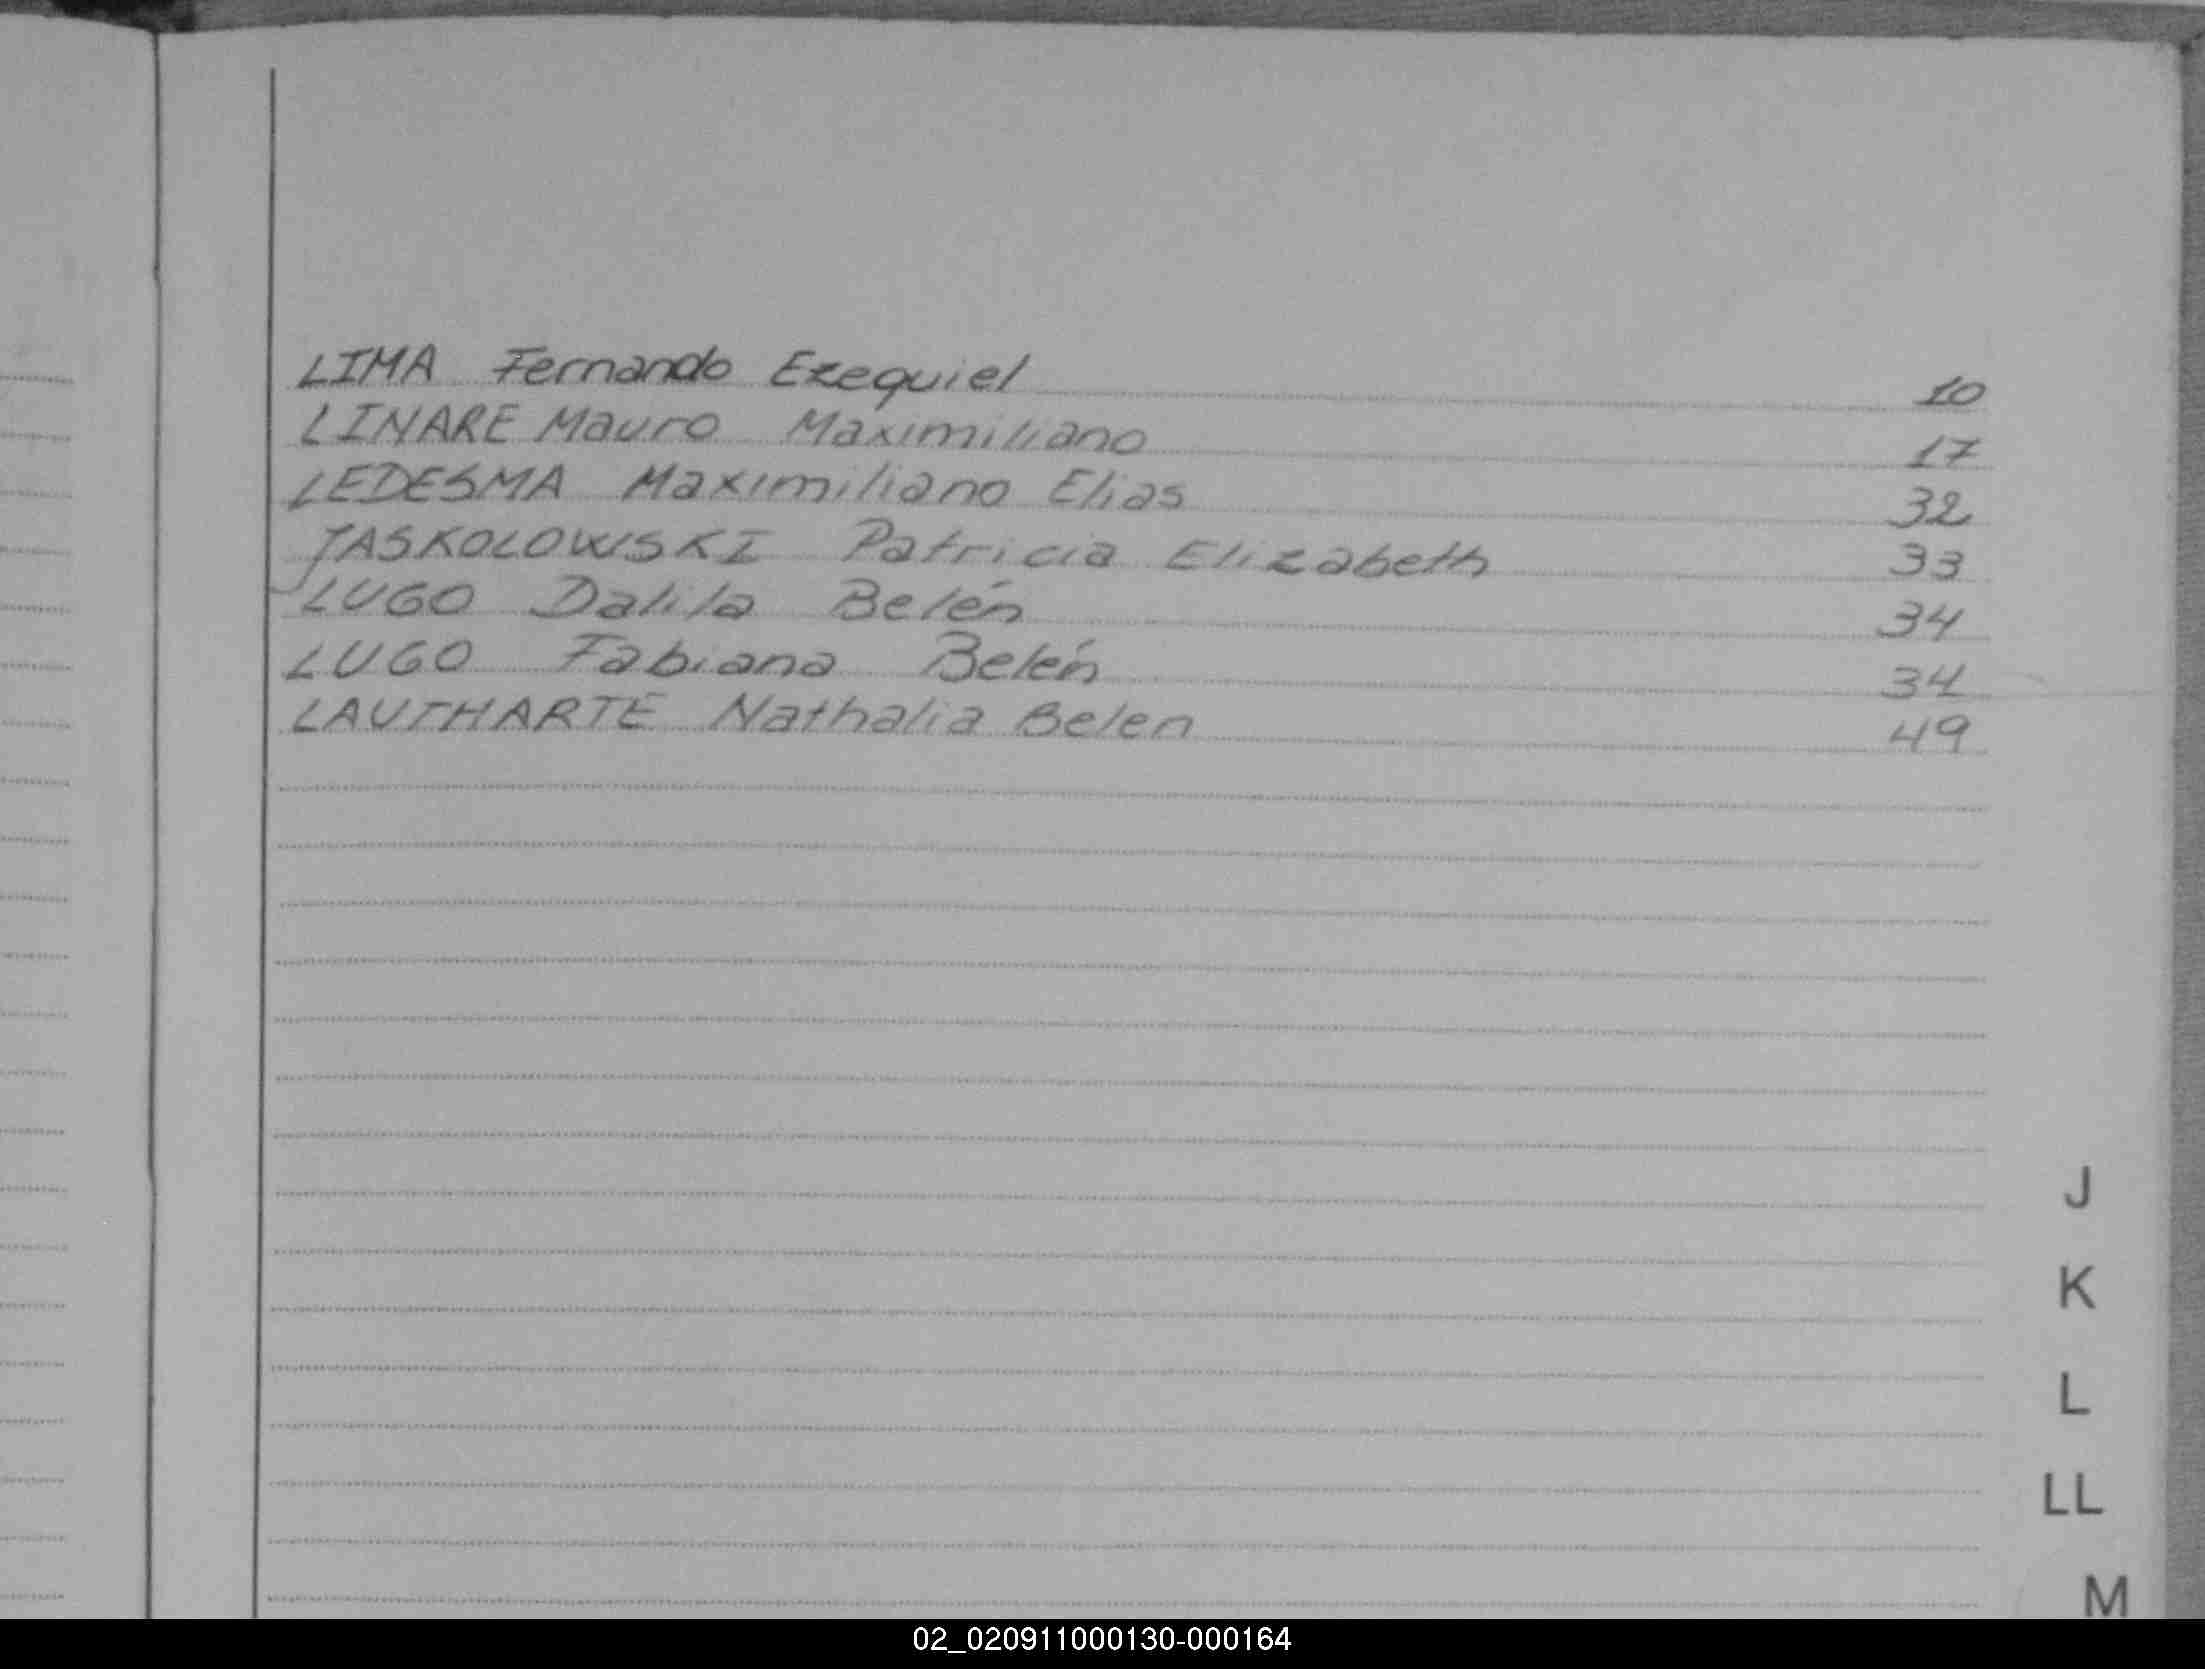 LIMA Fernando Ezequiel 10
LINARE Mauro Maximiliano 17
LEDESMA Maximiliano Elias 32
JASKOLOWSKI Patricia Elizabeth 33
LUGO Dalila Belén 34
LUGO Fabiana Belén 34
LAUTHARTE Nathalia Belen 49
J
K
L
LL
M
02_020911000130-000164